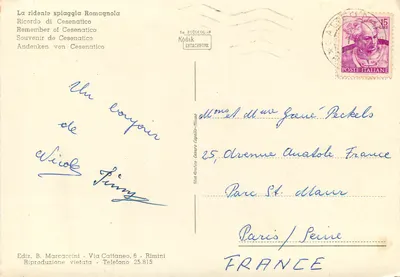 La ridente spiaggia Romagnola
Ricordo di Cesenatico
Remember of Cesenatico
Souvenir de Cesenatico
Andenken von Cesenatico
Kodak
15
POSTE ITALIANE
Un bonjour
de
Nicole
Jimmy
Mons et Mme Gané Peckels
25, Avenue Anatole France
Parc St. Maur
Paris / Seine
FRANCE
Ediz. B. Marcaccini - Via Cattaneo, 8 - Rimini
Riproduzione vietata - Telefono 25.815